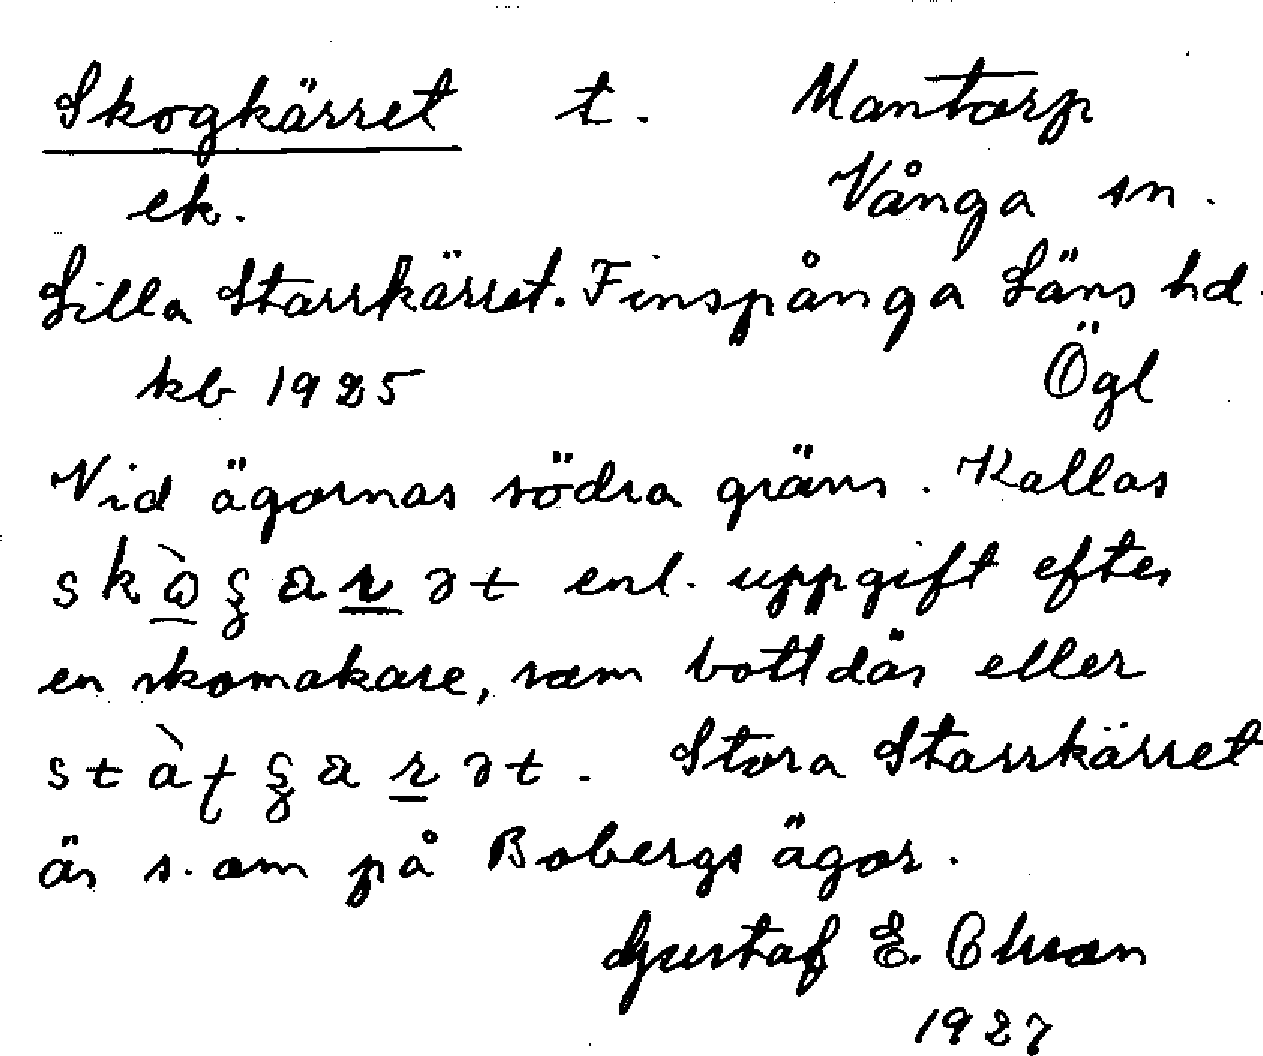 Skogkärret t. Mantorp
ek. Vånga sn.
Lilla Starrkärret. Finspånga Läns hd.
kb 1925 Ögl
Vid ägornas södra gräns. Kallas
enl. uppgift efter
en skomakare, som bott där eller
Stora Starrkärret
är s. om på Bobergs ägor.
Gustaf E. Olsson
1927